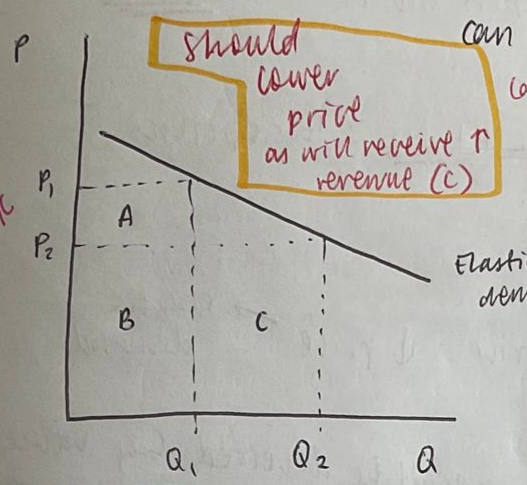 P
can
should
lower
price
as will receive ↑
revenue (C)
P₁
A
P₂
Elasti
dem
B
C
Q₁
Q₂
Q